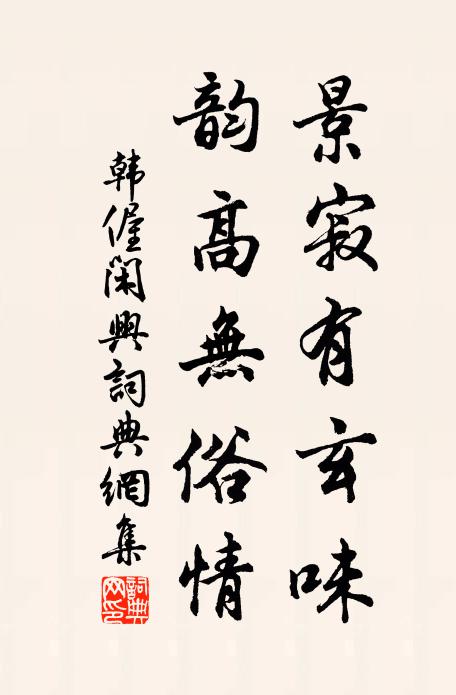 景寂有玄味
韵高無俗情
韩偓閑興詞典網集
詞典网印